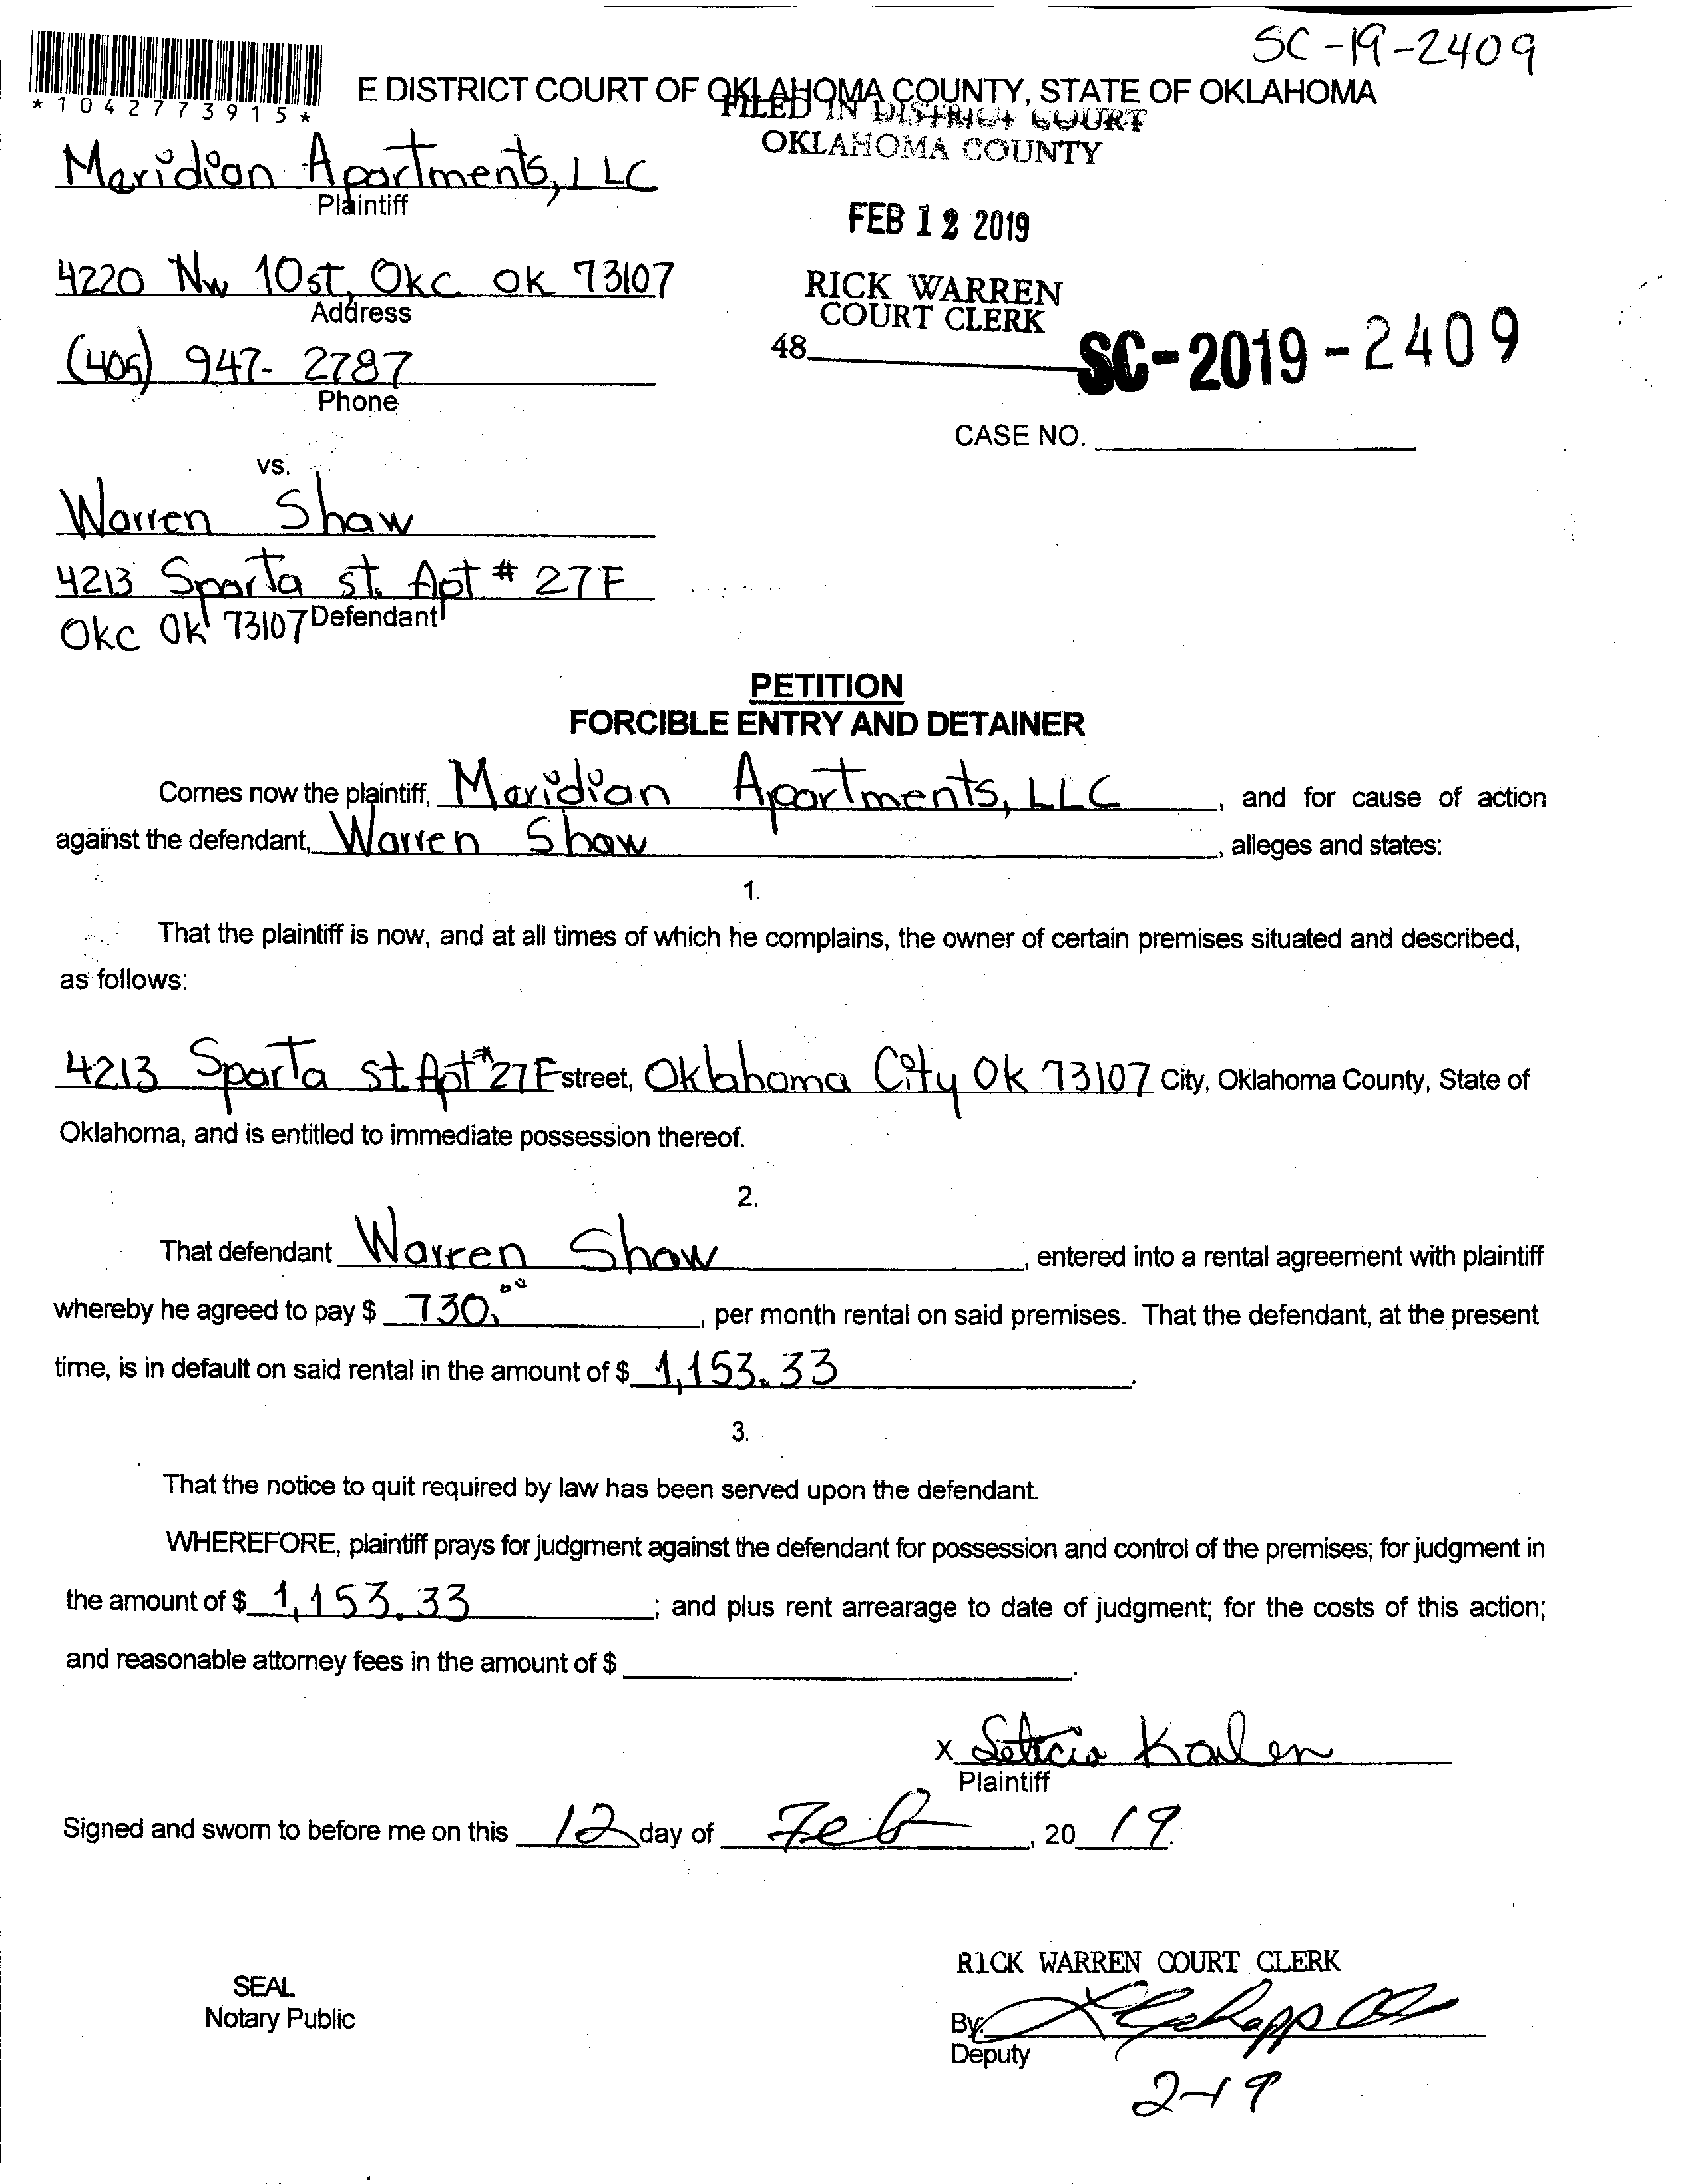 SC-19-2409
*1042773915*
E DISTRICT COURT OF OKLAHOMA COUNTY, STATE OF OKLAHOMA
FILED IN DISTRICT COURT
OKLAHOMA COUNTY
Maridian Apartments, LLC
Plaintiff
FEB 12 2019
4220 Nw 10st, Okc OK 73107
Address
RICK WARREN
COURT CLERK
(405) 947-2787
Phone
48
SC-2019-2409
CASE NO.
vs.
Warren Shaw
4213 Sparta st. Apt # 27F
Okc Ok 73107 Defendant
PETITION
FORCIBLE ENTRY AND DETAINER
Comes now the plaintiff, Maridian Apartments, LLC, and for cause of action
against the defendant, Warren Shaw, alleges and states:
1.
That the plaintiff is now, and at all times of which he complains, the owner of certain premises situated and described,
as follows:
4213 Sparta st Apt #27F street, Oklahoma City OK 73107 City, Oklahoma County, State of
Oklahoma, and is entitled to immediate possession thereof.
2.
That defendant Warren Shaw, entered into a rental agreement with plaintiff
whereby he agreed to pay $ 730.00, per month rental on said premises. That the defendant, at the present
time, is in default on said rental in the amount of $ 1,153.33.
3.
That the notice to quit required by law has been served upon the defendant.
WHEREFORE, plaintiff prays for judgment against the defendant for possession and control of the premises; for judgment in
the amount of $ 1,153.33; and plus rent arrearage to date of judgment; for the costs of this action;
and reasonable attorney fees in the amount of $ .
X
Plaintiff
Signed and sworn to before me on this 12 day of Feb, 20 19.
RICK WARREN COURT CLERK
SEAL
Notary Public
By
Deputy
2-19